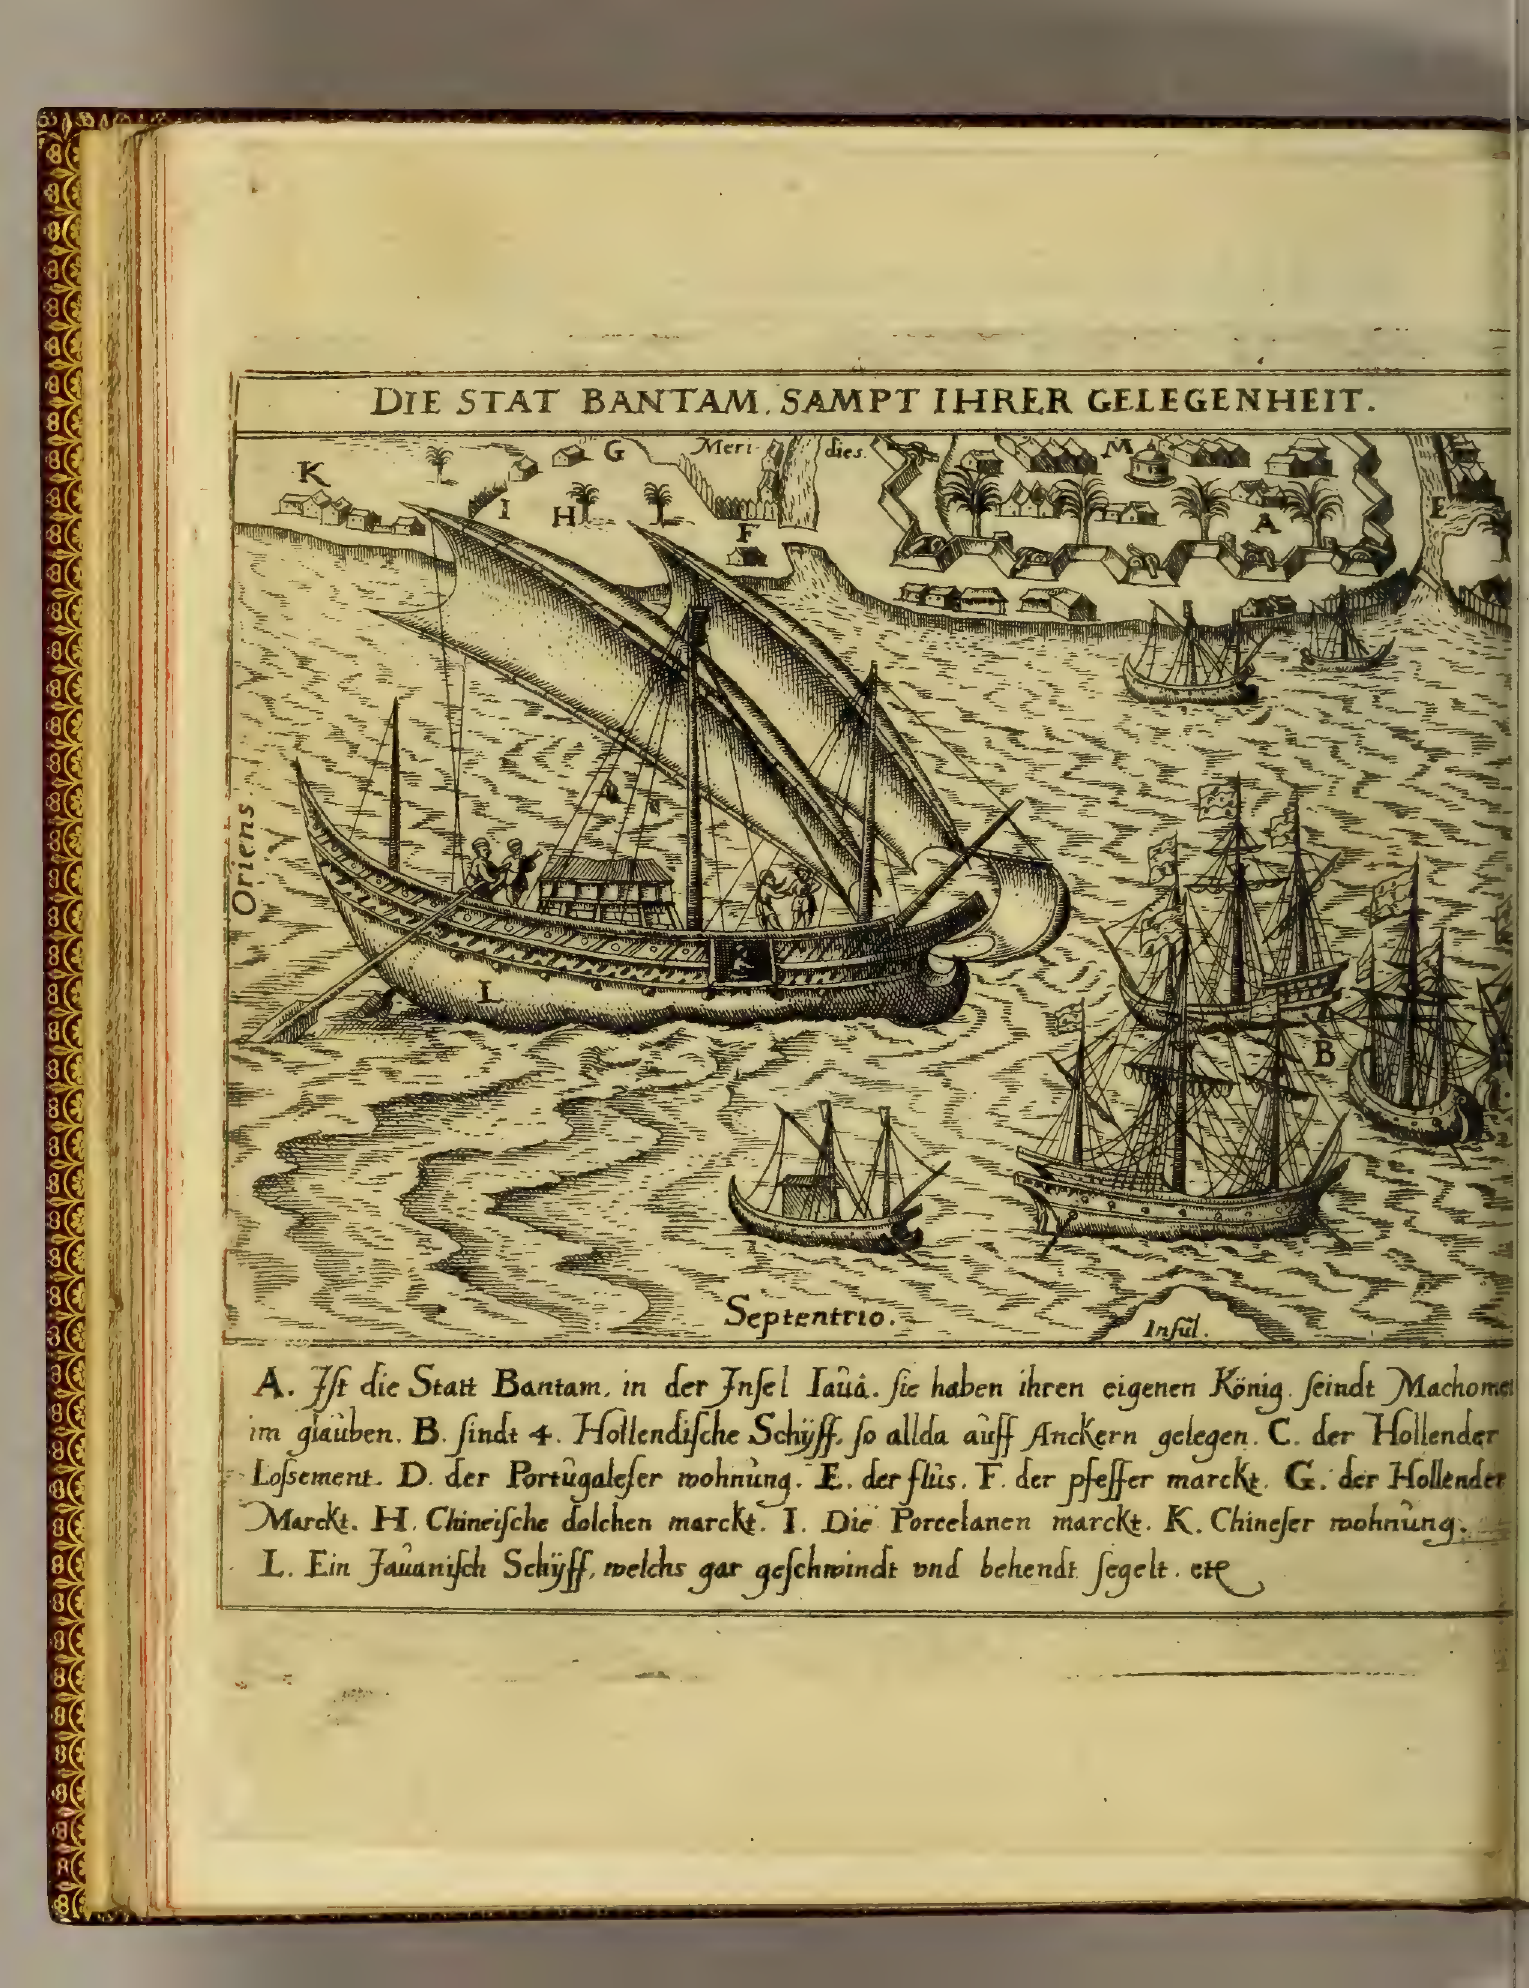 DIE STAT BANTAM. SAMPT IHRER GELEGENHEIT.
K
G
Meri dies.
M
I
H
F
A
E
Oriens.
L
B
Septentrio.
Insul.
A. Iſt die Statt Bantam, in der Inſel Iauâ. ſie haben ihren eigenen König. ſeindt Machomet
im glauben. B. ſindt 4. Hollendiſche Schÿff, ſo allda auff Anckern gelegen. C. der Hollender
Loſsement. D. der Portugaleſer wohnung. E. der flus. F. der pfeffer marckt. G. der Hollender
Marckt. H. Chineiſche dolchen marckt. I. Die Porcelanen marckt. K. Chineſer wohnung.
L. Ein Jauaniſch Schÿff, welchs gar geſchwindt vnd behendt ſegelt. etc